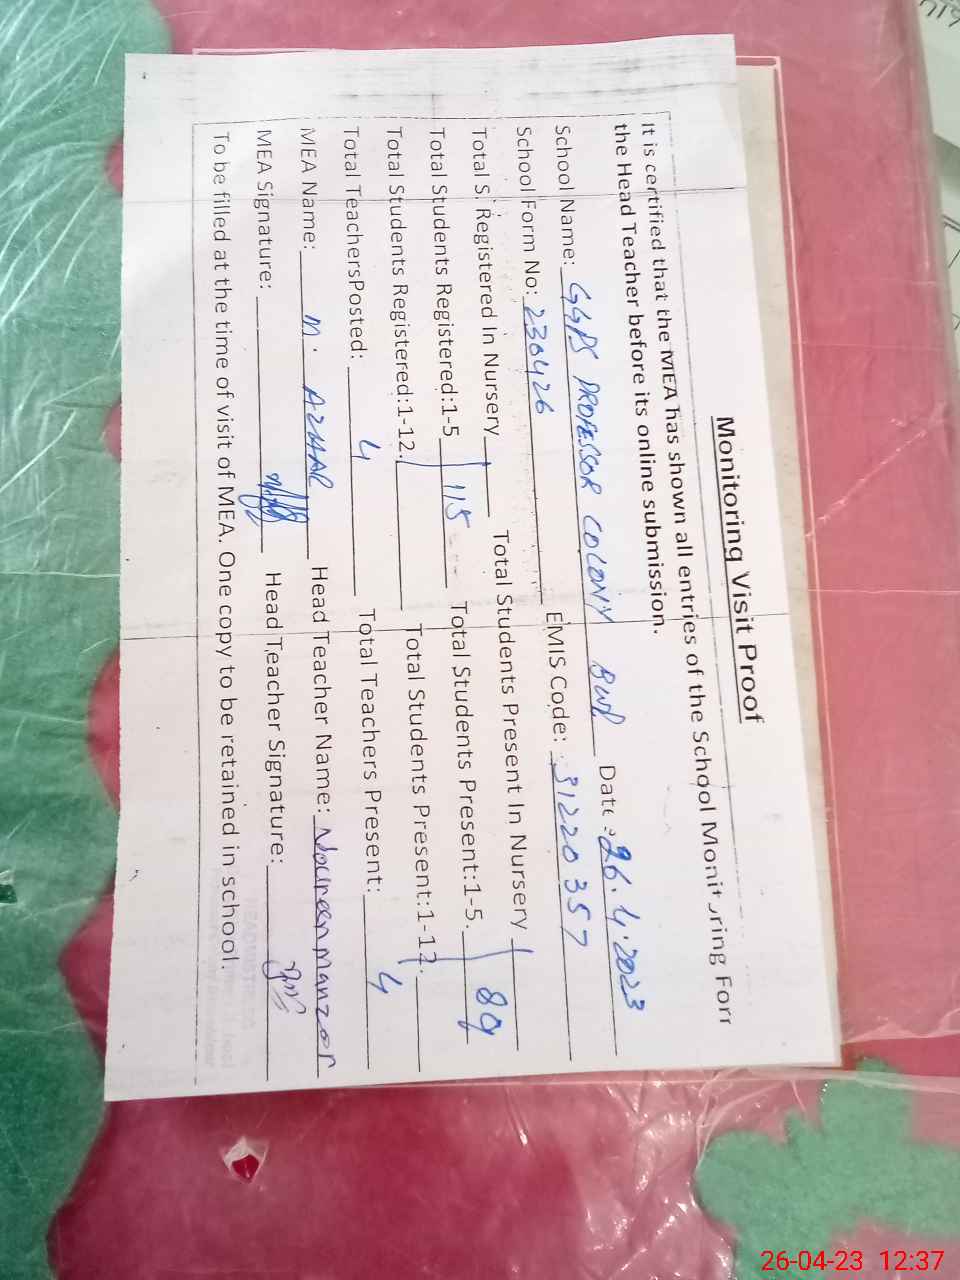 Monitoring Visit Proof
It is certified that the MEA has shown all entries of the School Monitoring Forr
the Head Teacher before its online submission.
School Name: GGPS PROFESSOR COLONY BWP Date: 26.4.2023
School Form No: 230426 EMIS Code: 31220357
Total S. Registered In Nursery Total Students Present In Nursery
Total Students Registered:1-5 115 Total Students Present:1-5. 89
Total Students Registered:1-12. Total Students Present:1-12.
Total TeachersPosted: 4 Total Teachers Present: 4
MEA Name: M. AZHAR Head Teacher Name: Noureen manzoor
MEA Signature: Head Teacher Signature:
To be filled at the time of visit of MEA. One copy to be retained in school.
26-04-23 12:37